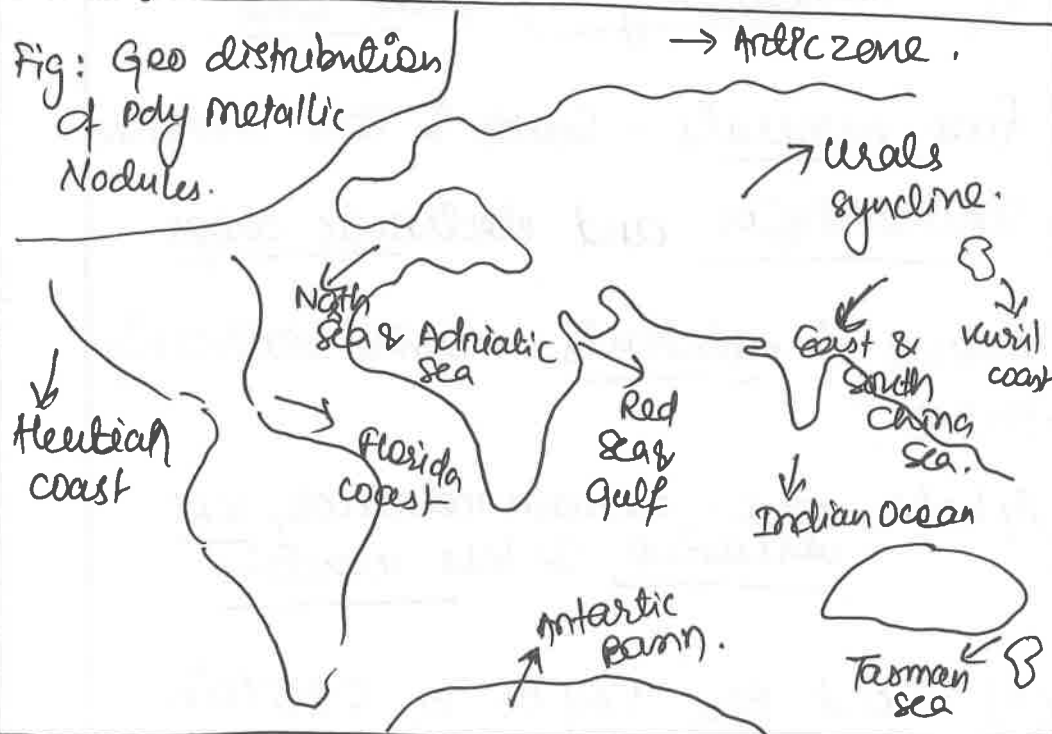 Fig: Geo distribution
of Poly metallic
Nodules.
→ Artic zone.
→ Urals
syncline.
North
sea & Adriatic
sea
East &
South
China
sea.
Kuril
coast
Red
sea &
Gulf
Aleutian
coast
Florida
coast
Indian Ocean
Antartic
Basin.
Tasman
sea